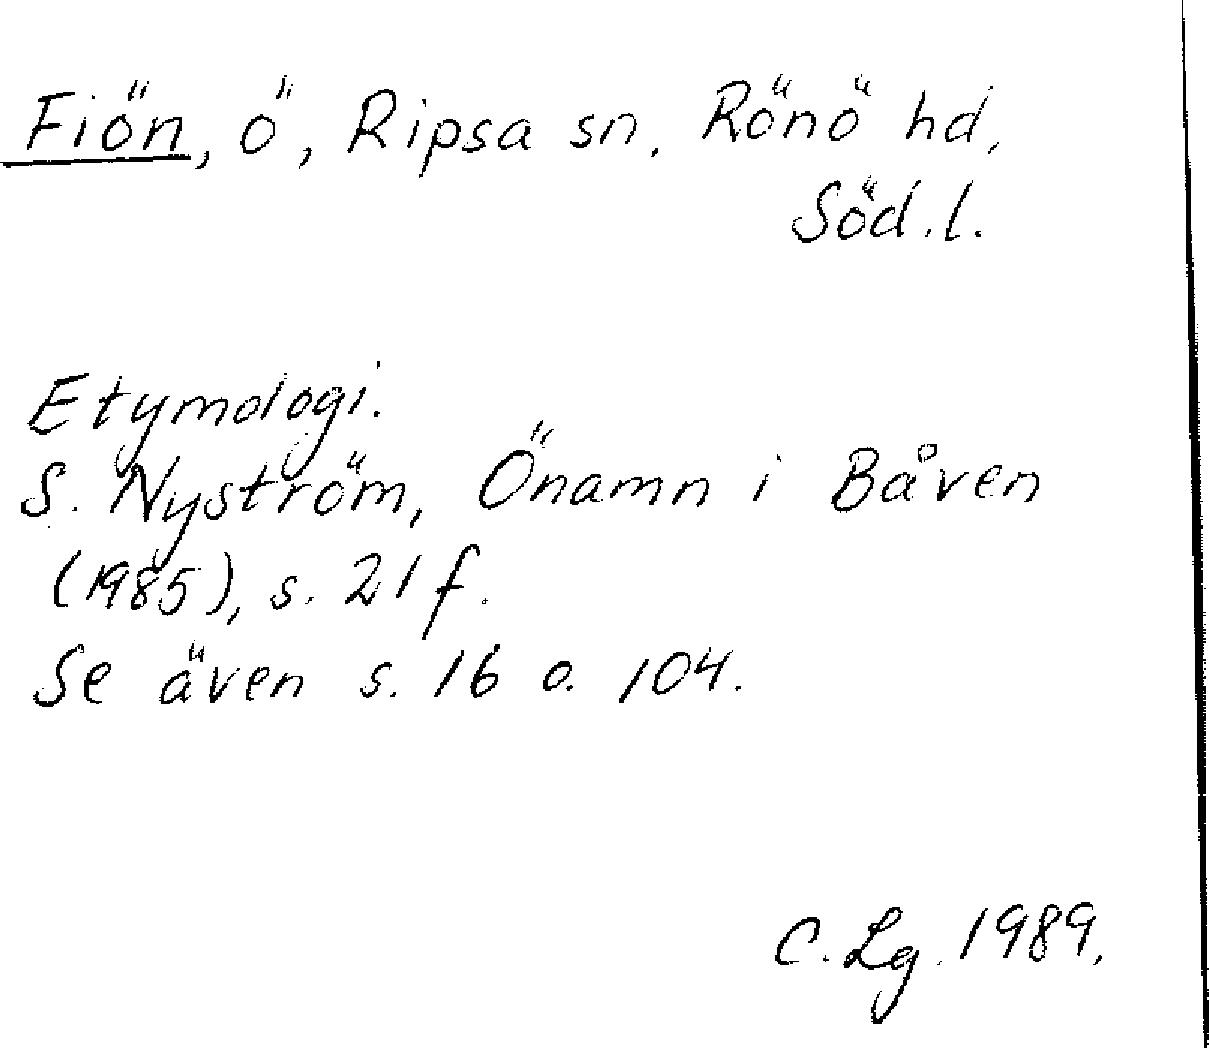 Fiön, ö, Ripsa sn. Rönö hd,
Söd.l.
Etymologi.
S. Nyström, Önamn i Båven
(1985), s. 21 f.
Se även s. 16 o. 104.
C. Lg. 1989.